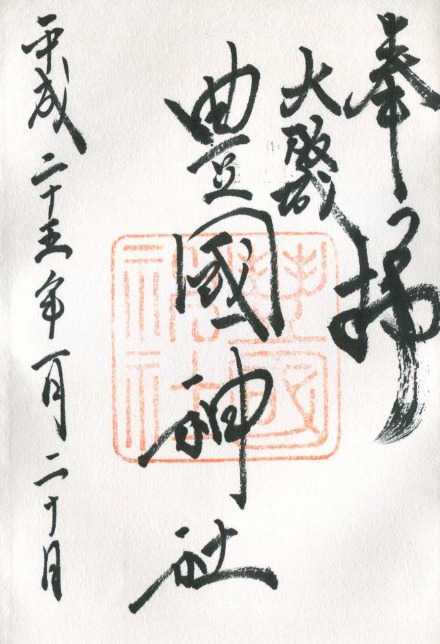 奉拝
大阪城
豊國神社
平成二十五年一月二十日
豊國神社